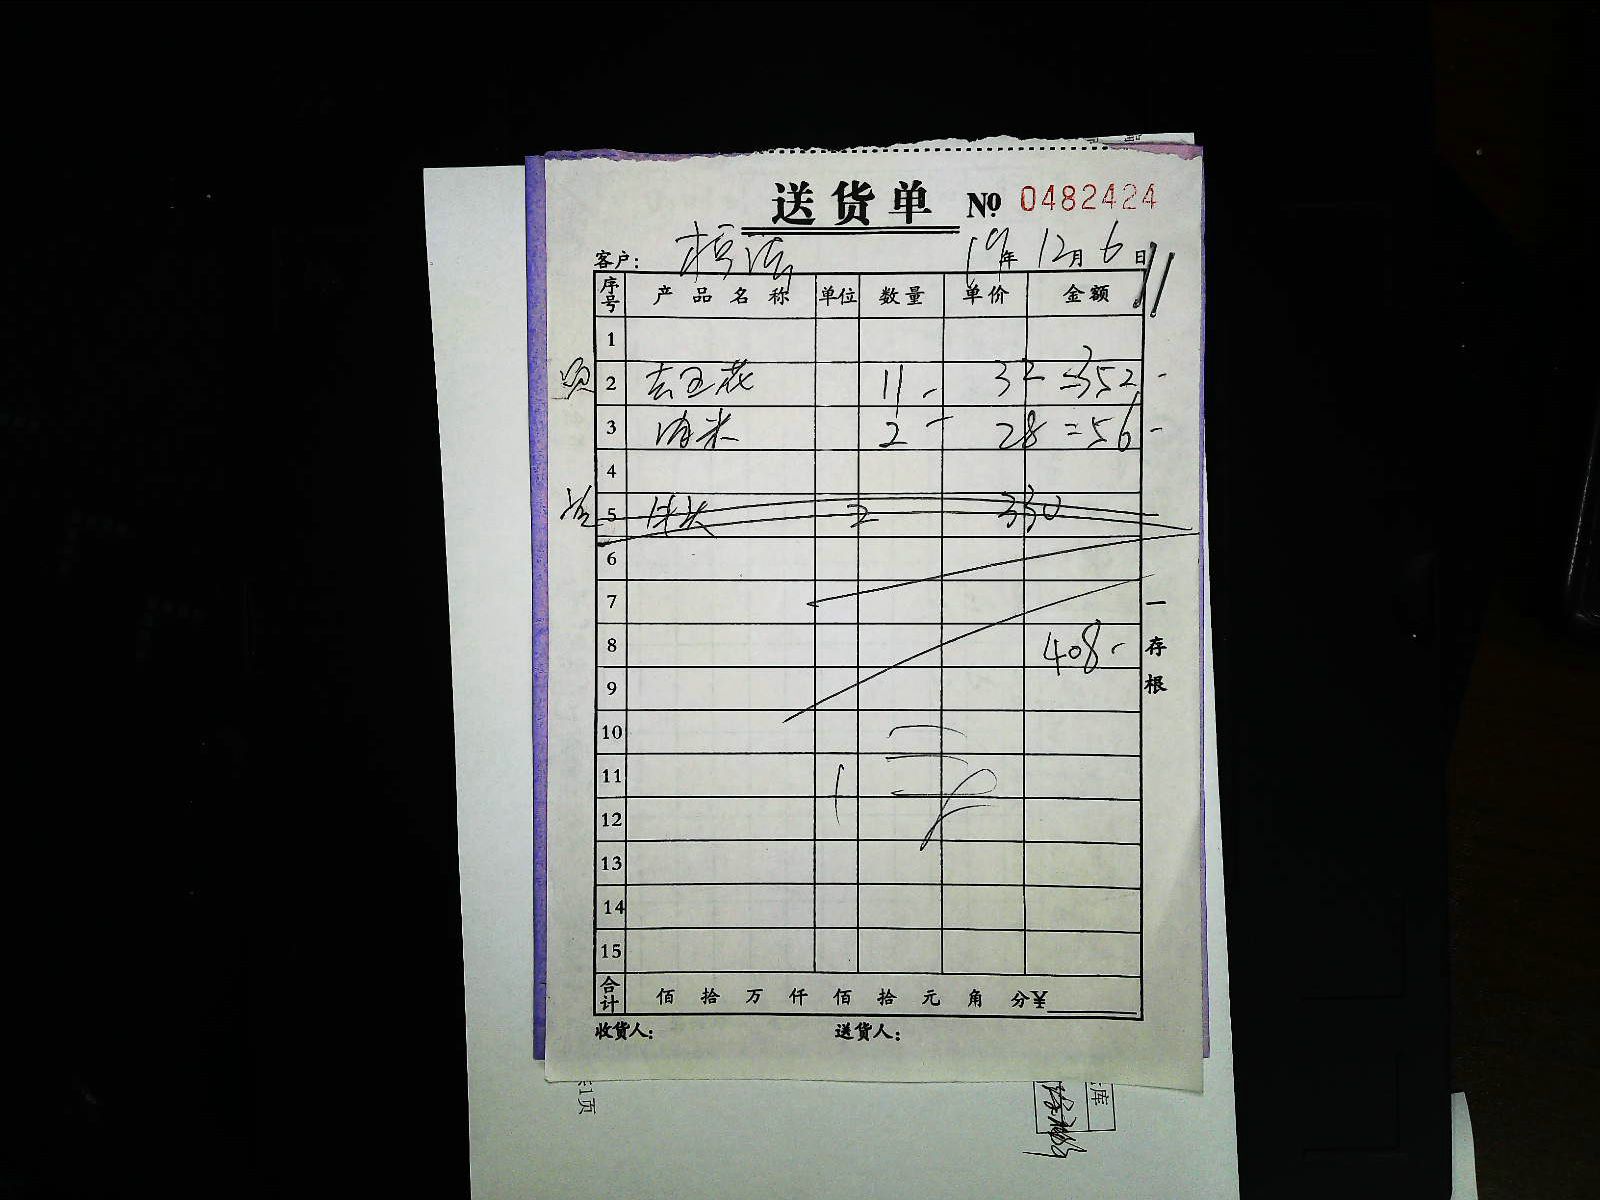 送货单 № 0482424
客户： 19年 12月 6日
序号 产品名称 单位 数量 单价 金额
1
2 去皮花 11- 32 =352-
3 肉米 2- 28 =56-
4
5 2 330
6
7
8 408-
9
10
11
12
13
14
15
合计 佰 拾 万 仟 佰 拾 元 角 分¥
收货人： 送货人：
一存根